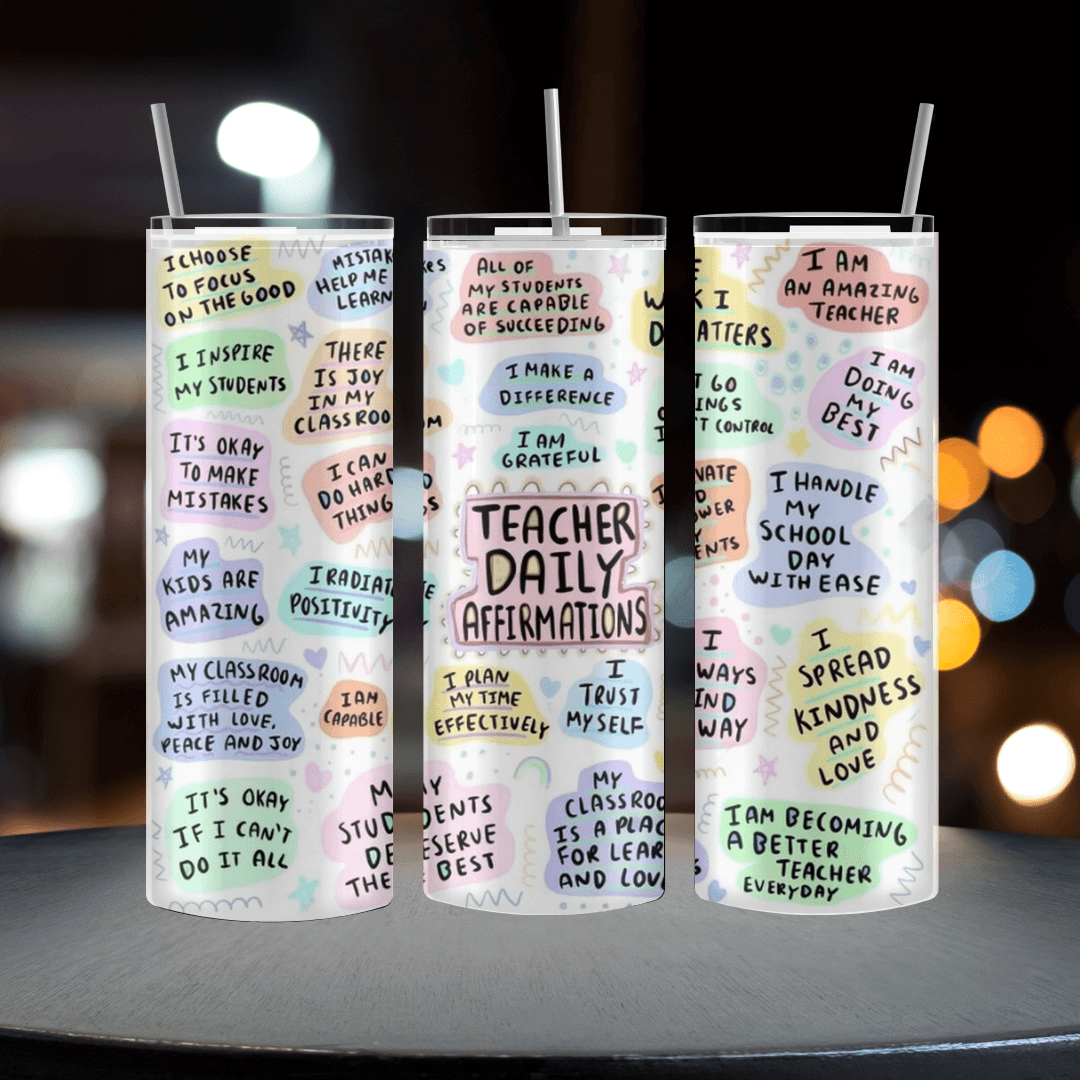 I CHOOSE
TO FOCUS
ON THE GOOD
MISTAK
HELP ME
LEARN
I INSPIRE
MY STUDENTS
THERE
IS JOY
IN MY
CLASSROO
IT'S OKAY
TO MAKE
MISTAKES
I CAN
DO HARD
THING
MY
KIDS ARE
AMAZING
I RADIAT
POSITIVITY
MY CLASSROOM
IS FILLED
WITH LOVE,
PEACE AND JOY
I AM
CAPABLE
IT'S OKAY
IF I CAN'T
DO IT ALL
M
STUD
DE
THE
KES
ALL OF
MY STUDENTS
ARE CAPABLE
OF SUCCEEDING
W
D
I MAKE A
DIFFERENCE
OM
I AM
GRATEFUL
D
S
TEACHER
DAILY
AFFIRMATIONS
TE
I PLAN
MY TIME
EFFECTIVELY
I
TRUST
MY SELF
Y
DENTS
ESERVE
BEST
MY
CLASSROO
IS A PLAC
FOR LEAR
AND LOV
E
K I
ATTERS
I AM
AN AMAZING
TEACHER
T GO
INGS
T CONTROL
I AM
DOING
MY
BEST
VATE
D
OWER
Y
ENTS
I HANDLE
MY
SCHOOL
DAY
WITH EASE
I
WAYS
IND
WAY
I
SPREAD
KINDNESS
AND
LOVE
I AM BECOMING
A BETTER
TEACHER
EVERYDAY